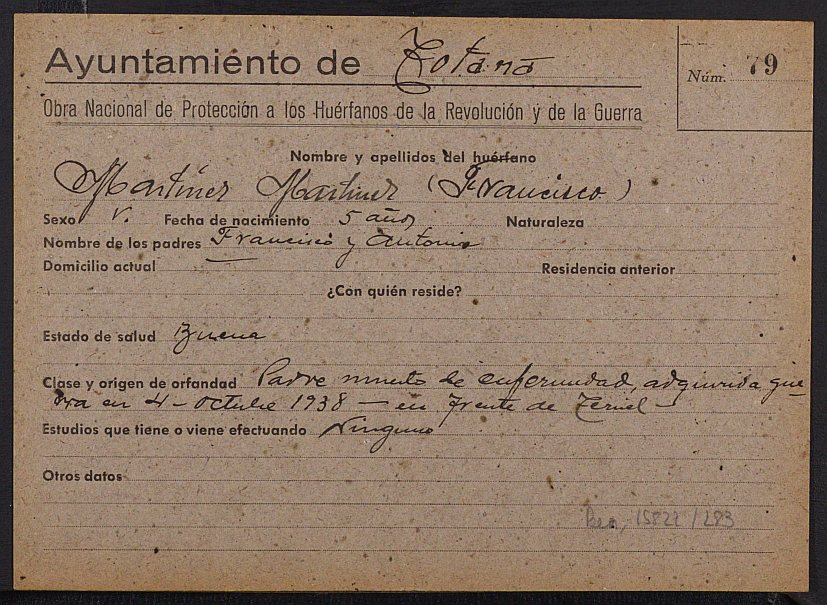 Ayuntamiento de Totana
Núm. 79
Obra Nacional de Protección a los Huérfanos de la Revolución y de la Guerra
Nombre y apellidos del huérfano
Martinez Martinez (Francisco)
Sexo V. Fecha de nacimiento 5 años Naturaleza
Nombre de los padres Francisco y Antonia
Domicilio actual Residencia anterior
¿Con quién reside?
Estado de salud Buena
Clase y origen de orfandad Padre muerto de enfermedad, adquirida gue-
rra en 4 - octubre 1938 - en frente de Teruel -
Estudios que tiene o viene efectuando Ninguno
Otros datos
15822/283